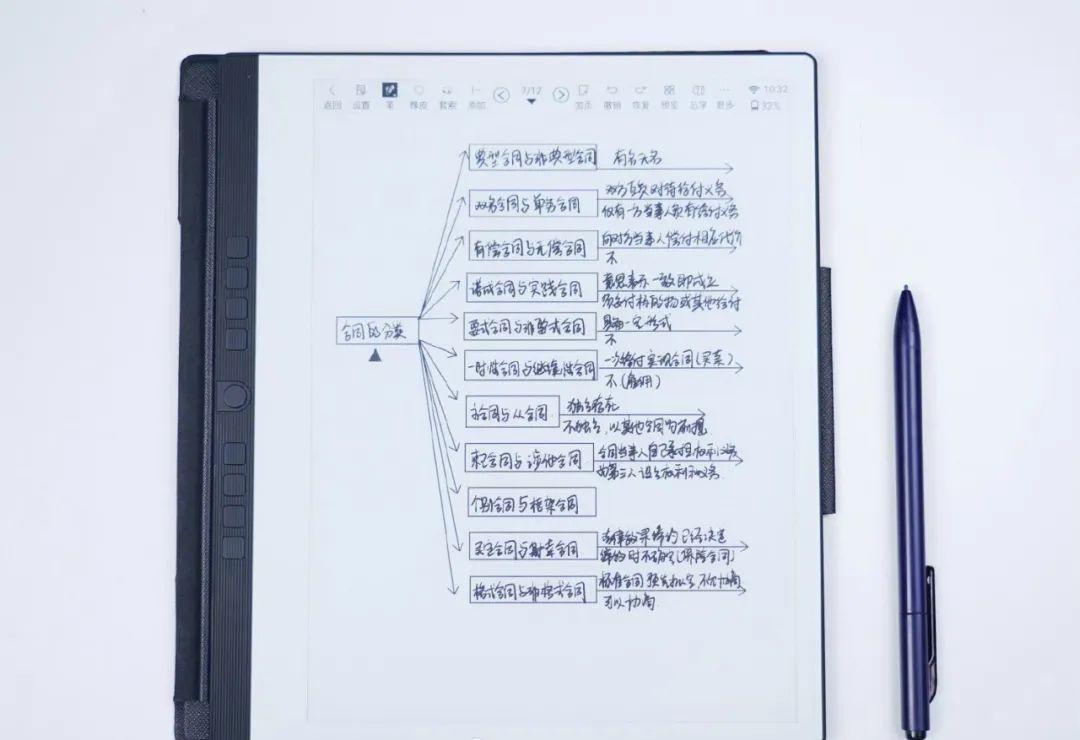 返回 设置 笔 橡皮 套索 添加 7/12 加页 撤销 恢复 预览 总学 更多 10:32 32%
典型合同与非典型合同 有名无名
双务合同与单务合同 双方负对待给付义务
仅有一方当事人负有给付义务
有偿合同与无偿合同 向对方当事人偿付相应代价
不
诺成合同与实践合同 意思表示一致即成立
须交付标的物或其他给付
要式合同与非要式合同 具备一定形式
不
合同的分类
一时性合同与继续性合同 一次给付实现合同(买卖)
不(雇佣)
主合同与从合同 独立存在
不独立,以其他合同为前提
束己合同与涉他合同 合同当事人自己承担权利义务
为第三人设立权利和义务
个别合同与框架合同
实定合同与射幸合同 法律效果缔约已经决定
缔约时不确定(保险合同)
格式合同与非格式合同 标准合同 预先拟定,不化协商
可以协商